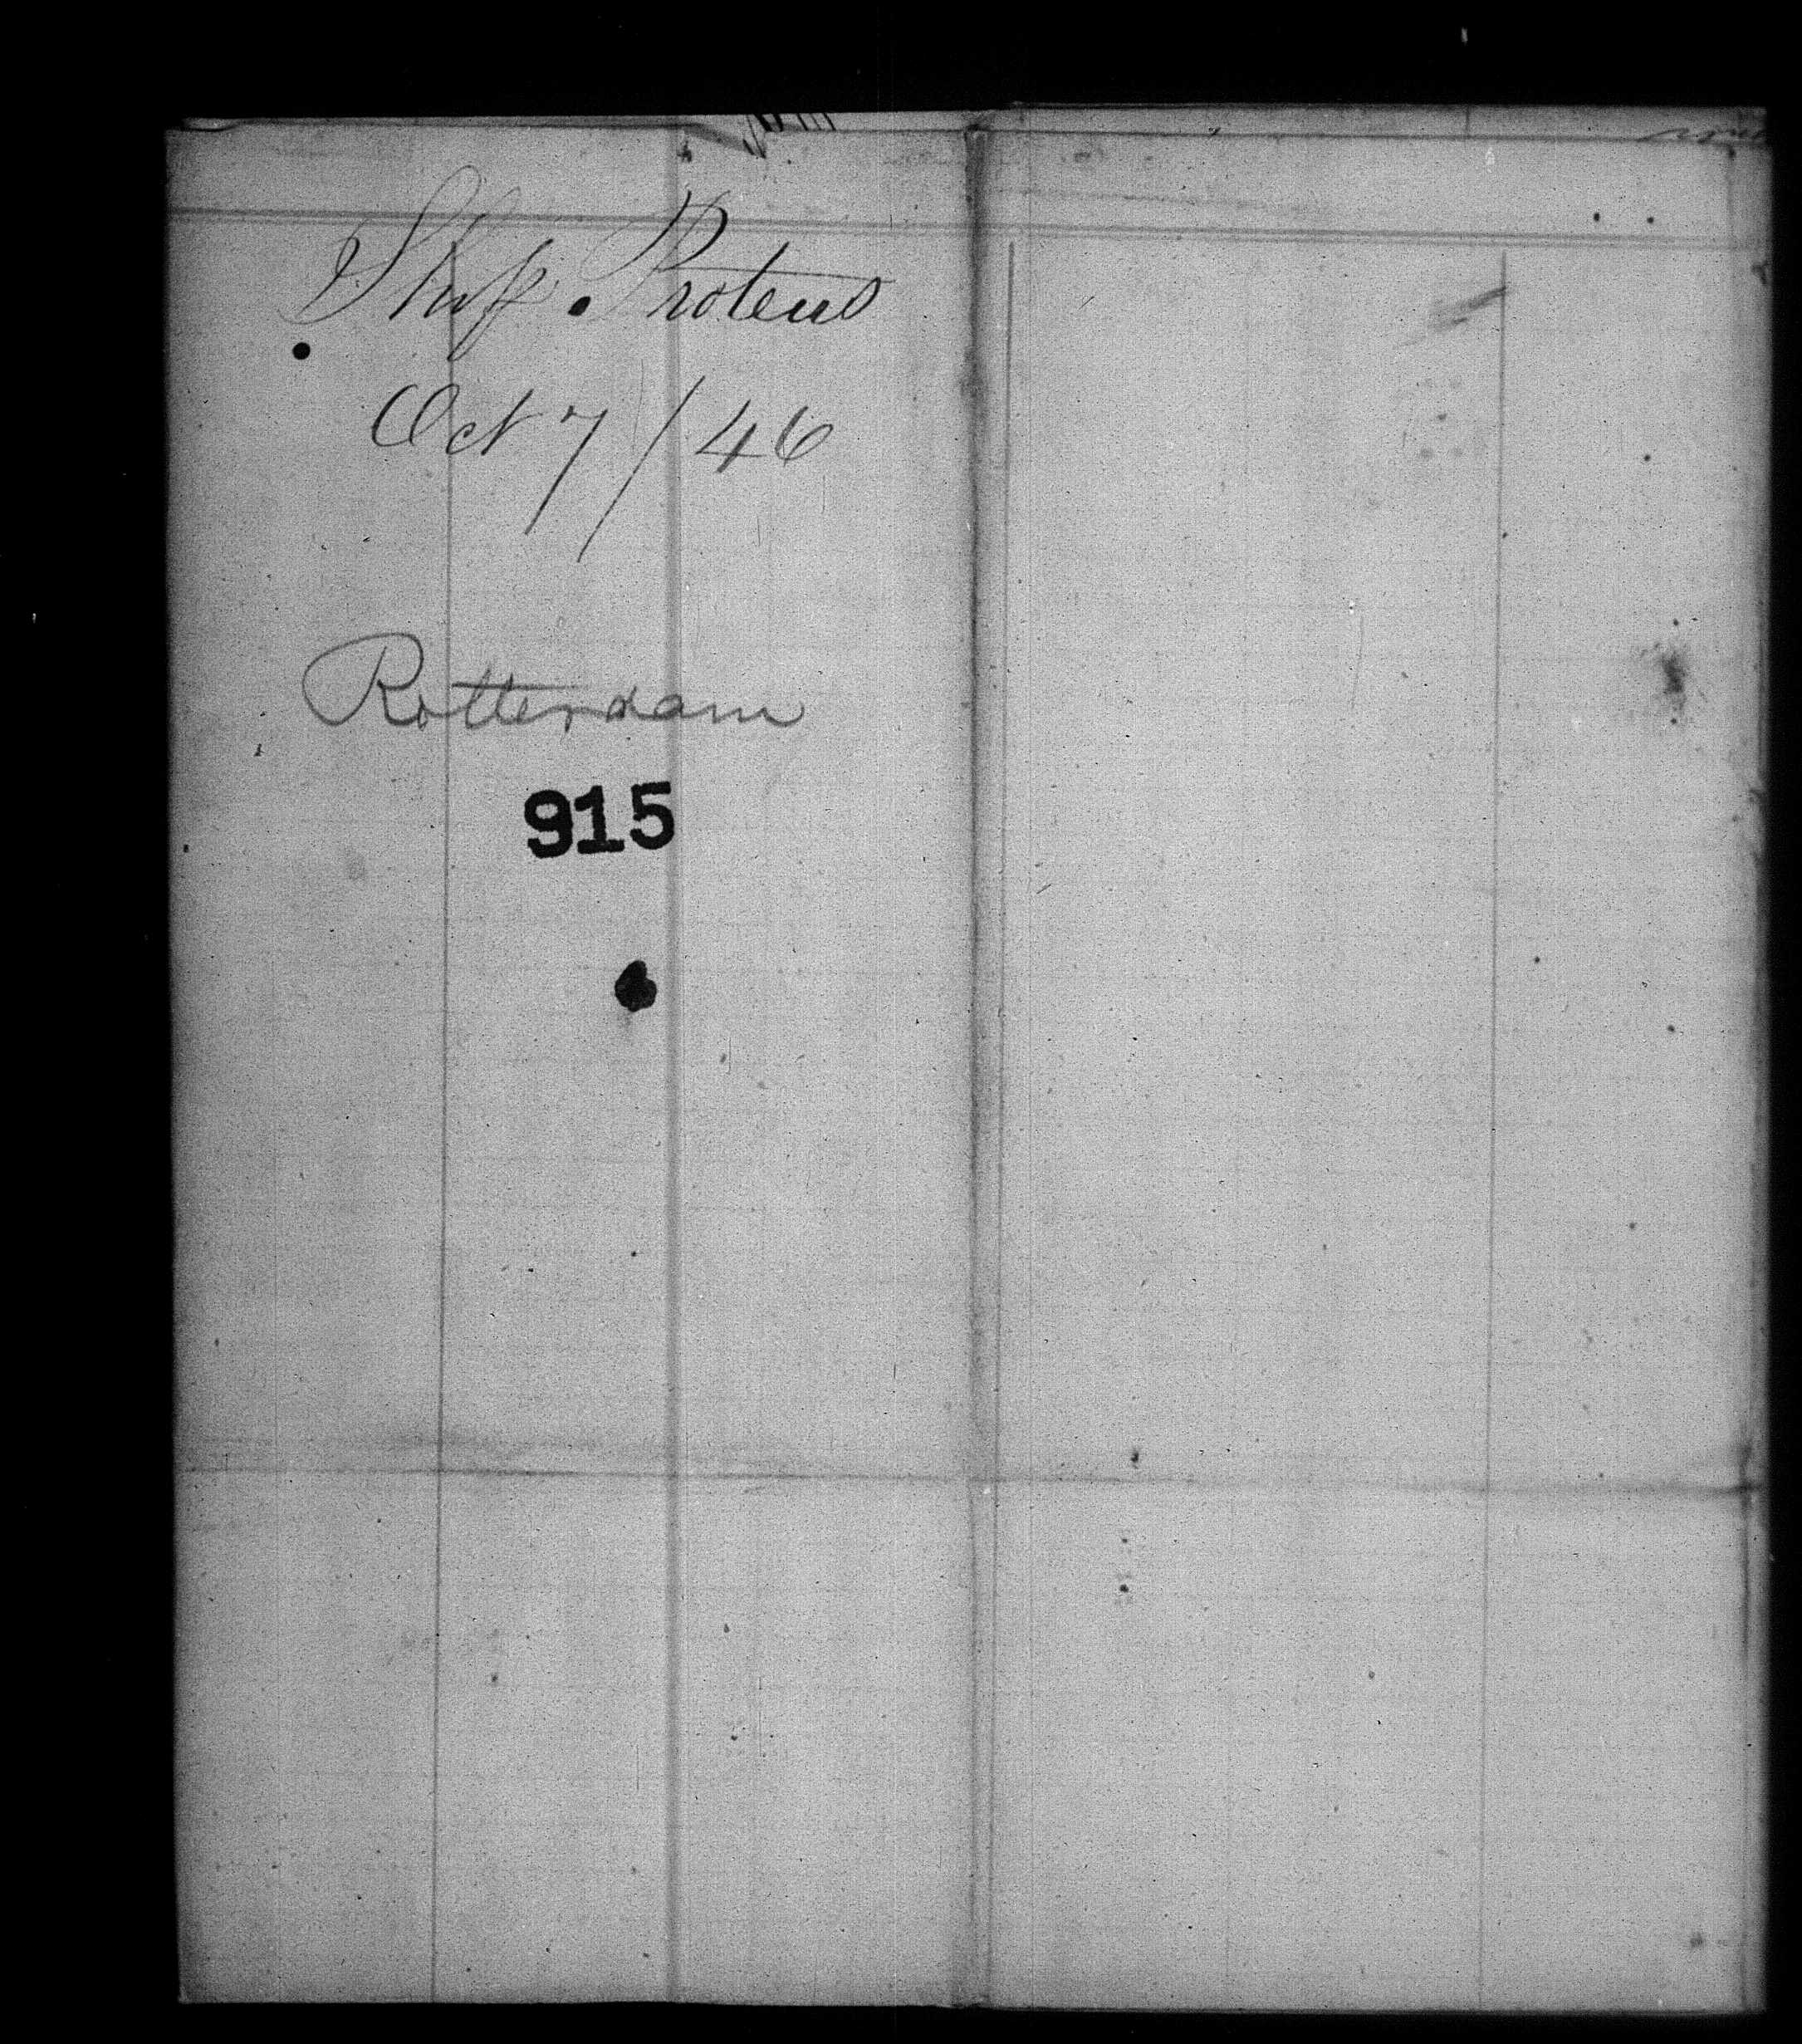 Ship. Proteus
Oct 7/46
Rotterdam
915